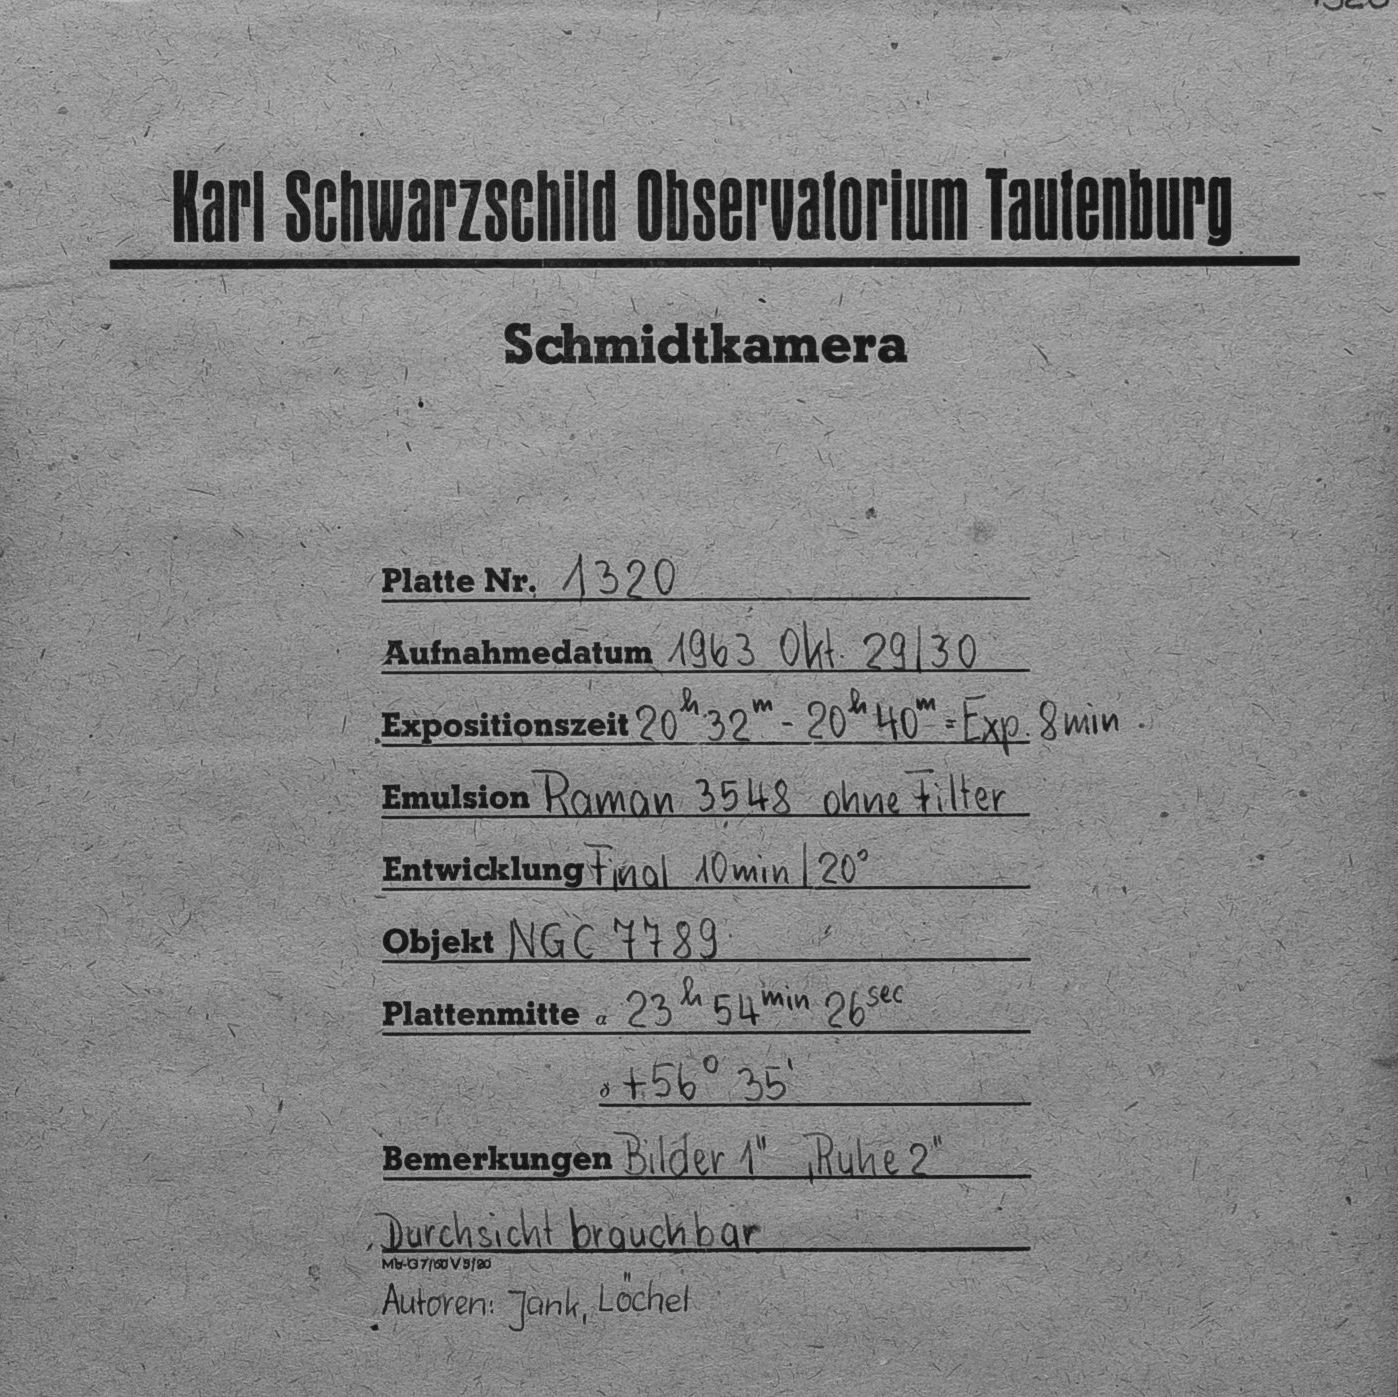 1320
Karl Schwarzschild Observatorium Tautenburg
Schmidtkamera
Platte Nr. 1320
Aufnahmedatum 1963 Okt. 29/30
Expositionszeit 20ʰ 32ᵐ - 20ʰ 40ᵐ = Exp. 8min.
Emulsion Raman 3548 ohne Filter
Entwicklung Final 10min/20°
Objekt NGC 7789
Plattenmitte α 23ʰ 54ᵐⁱⁿ 26ˢᵉᶜ
δ +56° 35'
Bemerkungen Bilder 1" , Ruhe 2"
Durchsicht brauchbar
Autoren: Jank, Löchel